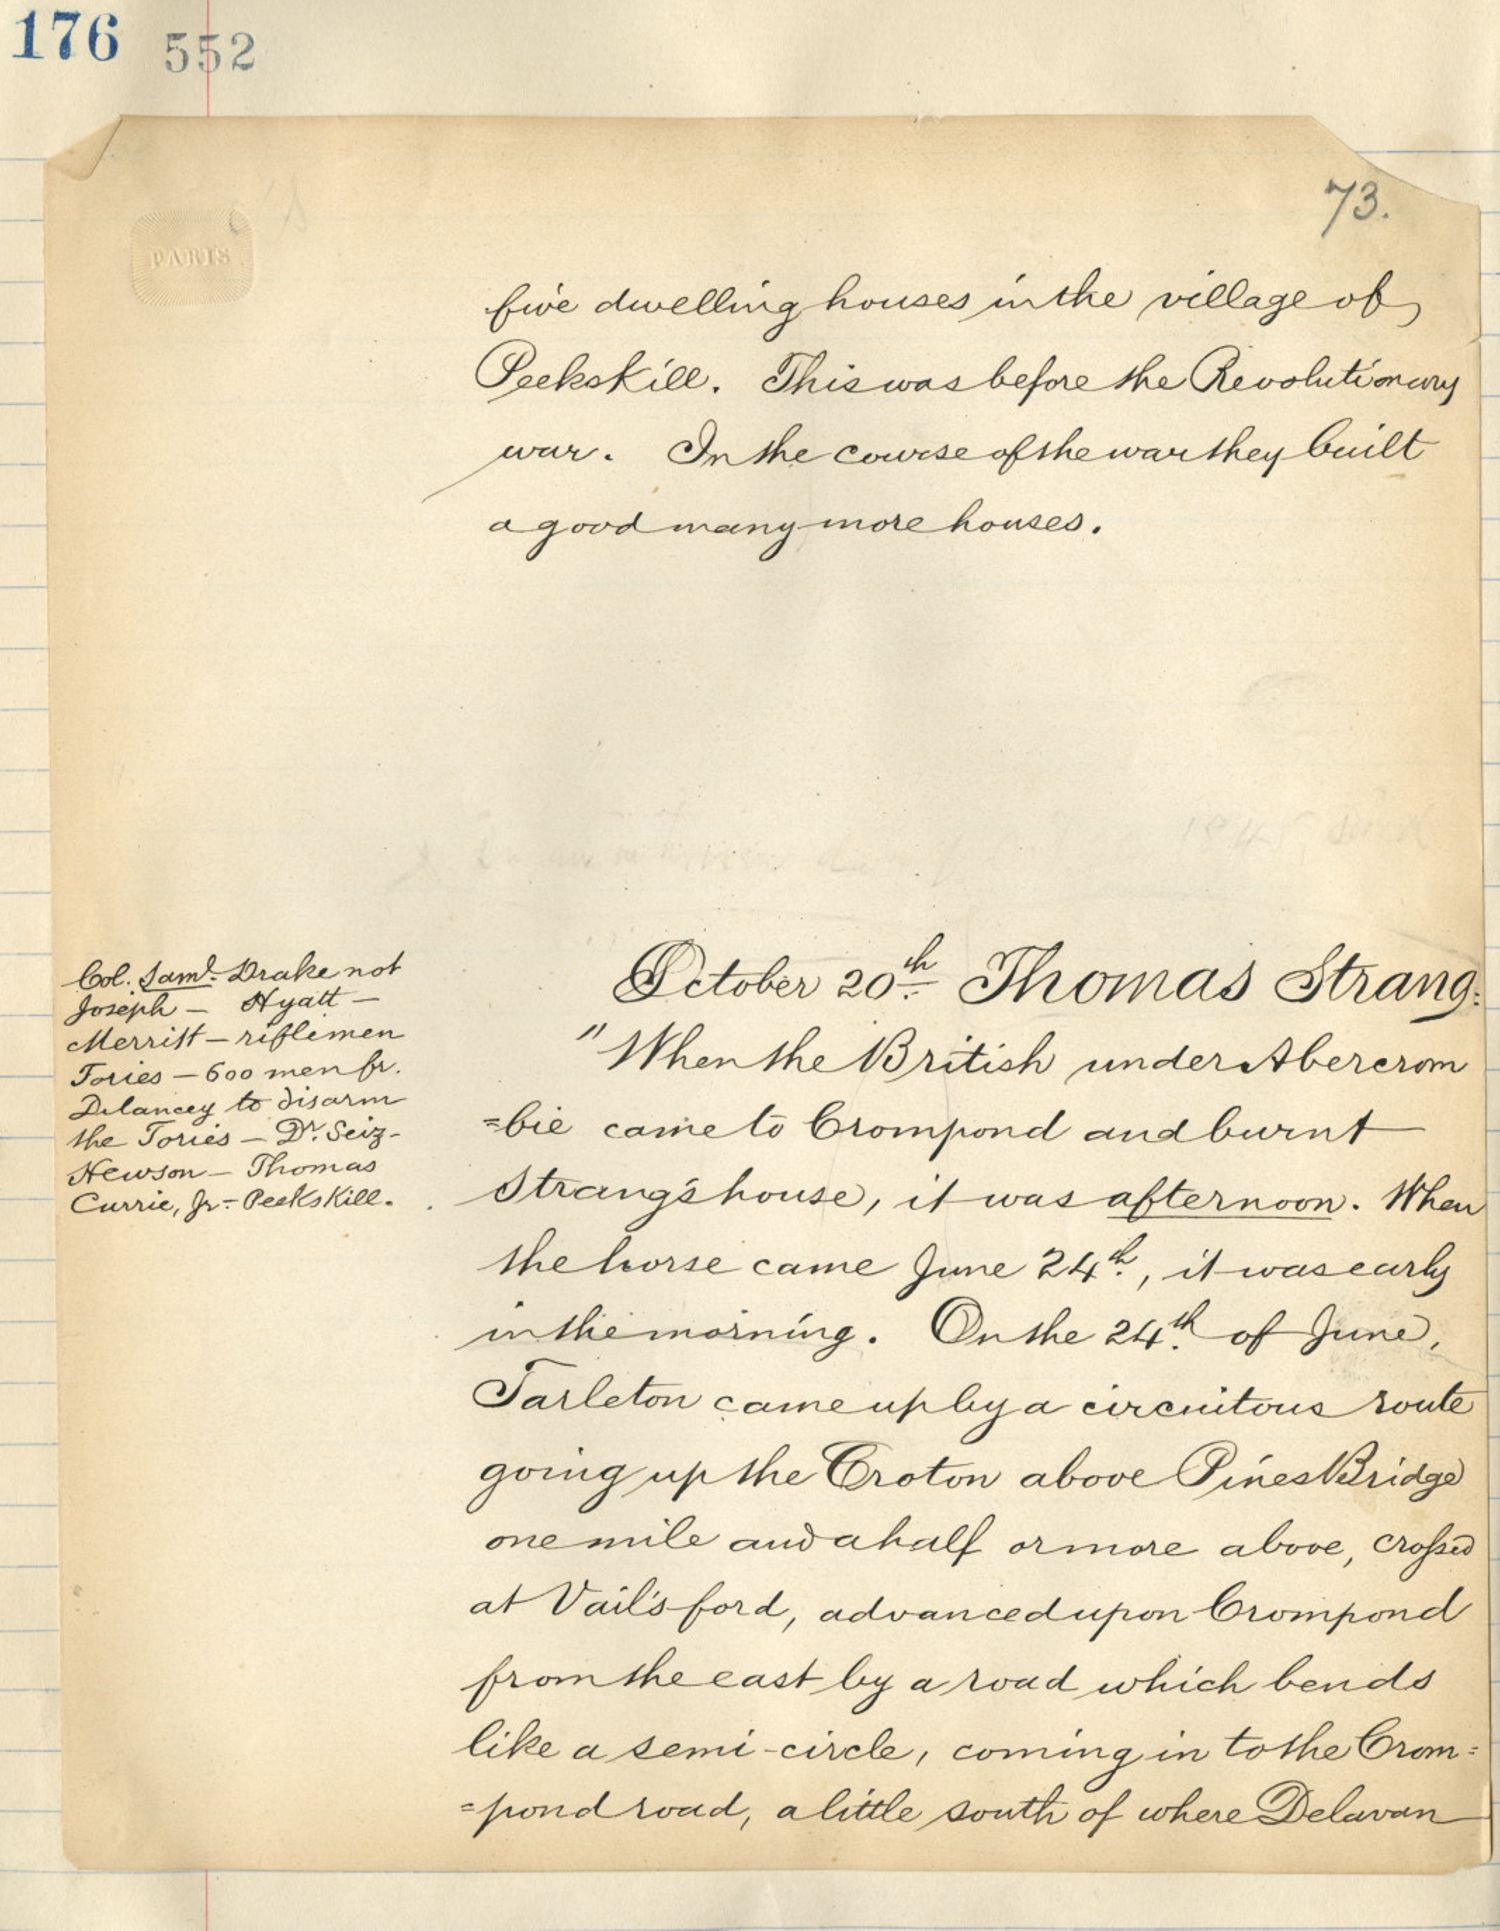 176 552
73.
PARIS
five dwelling houses in the village of
Peekskill. This was before the Revolutionary
war. In the course of the war they built
a good many more houses.
Col. Saml. Drake not
Joseph — Hyatt —
Merritt — riflemen
Tories — 600 men fr.
Delancey to disarm
the Tories — Dr. Seiz-
Hewson — Thomas
Currie, Jr. — Peekskill.
October 20th. Thomas Strang:
"When the British under Abercrom
=bie came to Crompond and burnt
Strang's house, it was afternoon. When
the horse came June 24th., it was early
in the morning. On the 24th. of June,
Tarleton came up by a circuitous route
going up the Croton above Pines Bridge
one mile and a half or more above, crossed
at Vail's ford, advanced upon Crompond
from the east by a road which bends
like a semi-circle, coming in to the Crom=
=pond road, a little south of where Delavan